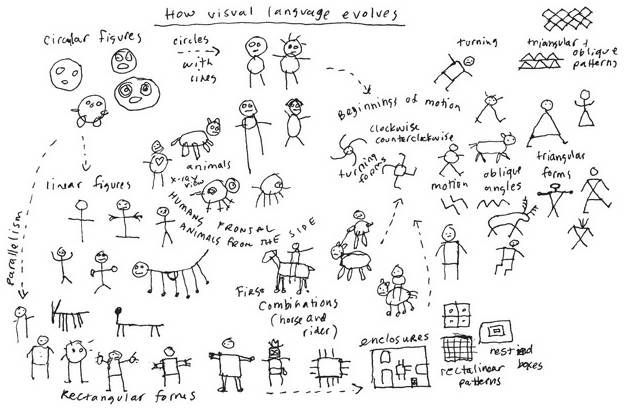 How visual language evolves
circular figures
circles
with
lines
turning
triangular +
oblique
patterns
Beginnings of motion
clockwise
counterclockwise
turning
forms
animals
x-ray
view
motion
oblique
angles
triangular
forms
linear figures
HUMANS FRONTAL
ANIMALS FROM THE SIDE
Parallelism
First
Combinations
(horse and
rider)
enclosures
nested
boxes
rectalinear
patterns
Rectangular forms